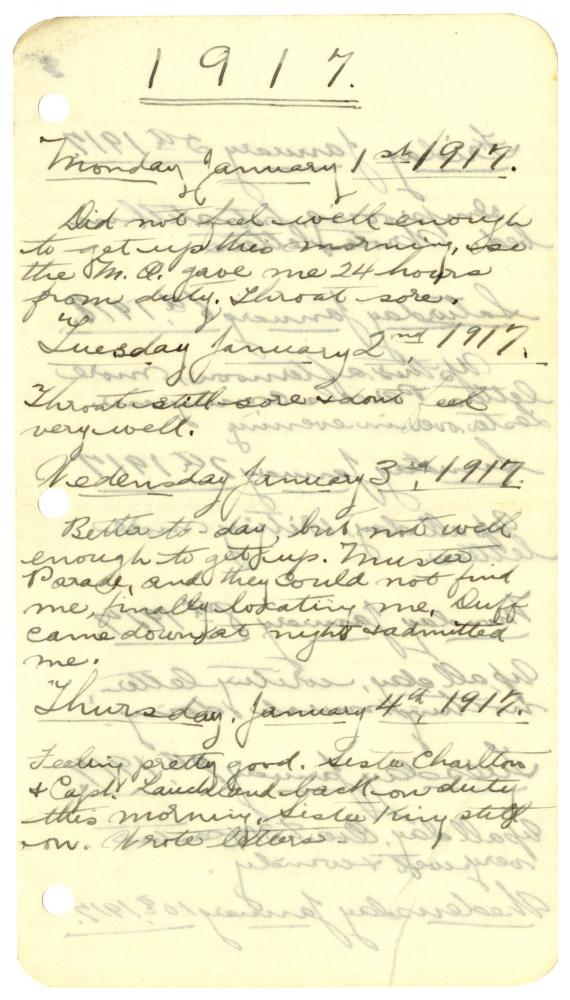 1917.
Monday January 1st 1917.
Did not feel well enough
to get up this morning, so
the M.O. gave me 24 hours
from duty. Throat sore.
Tuesday January 2nd, 1917.
Throat still sore & dont feel
very well.
Wedensday January 3rd, 1917.
Better to day, but not well
enough to get up. Muster
Parade, and they could not find
me, finally locating me. Duff
came down at night & admitted
me.
Thursday, January 4th, 1917.
Feeling pretty good. Sister Charlton
& Capt. back on duty
this morning, Sister King still
on. Wrote letters.